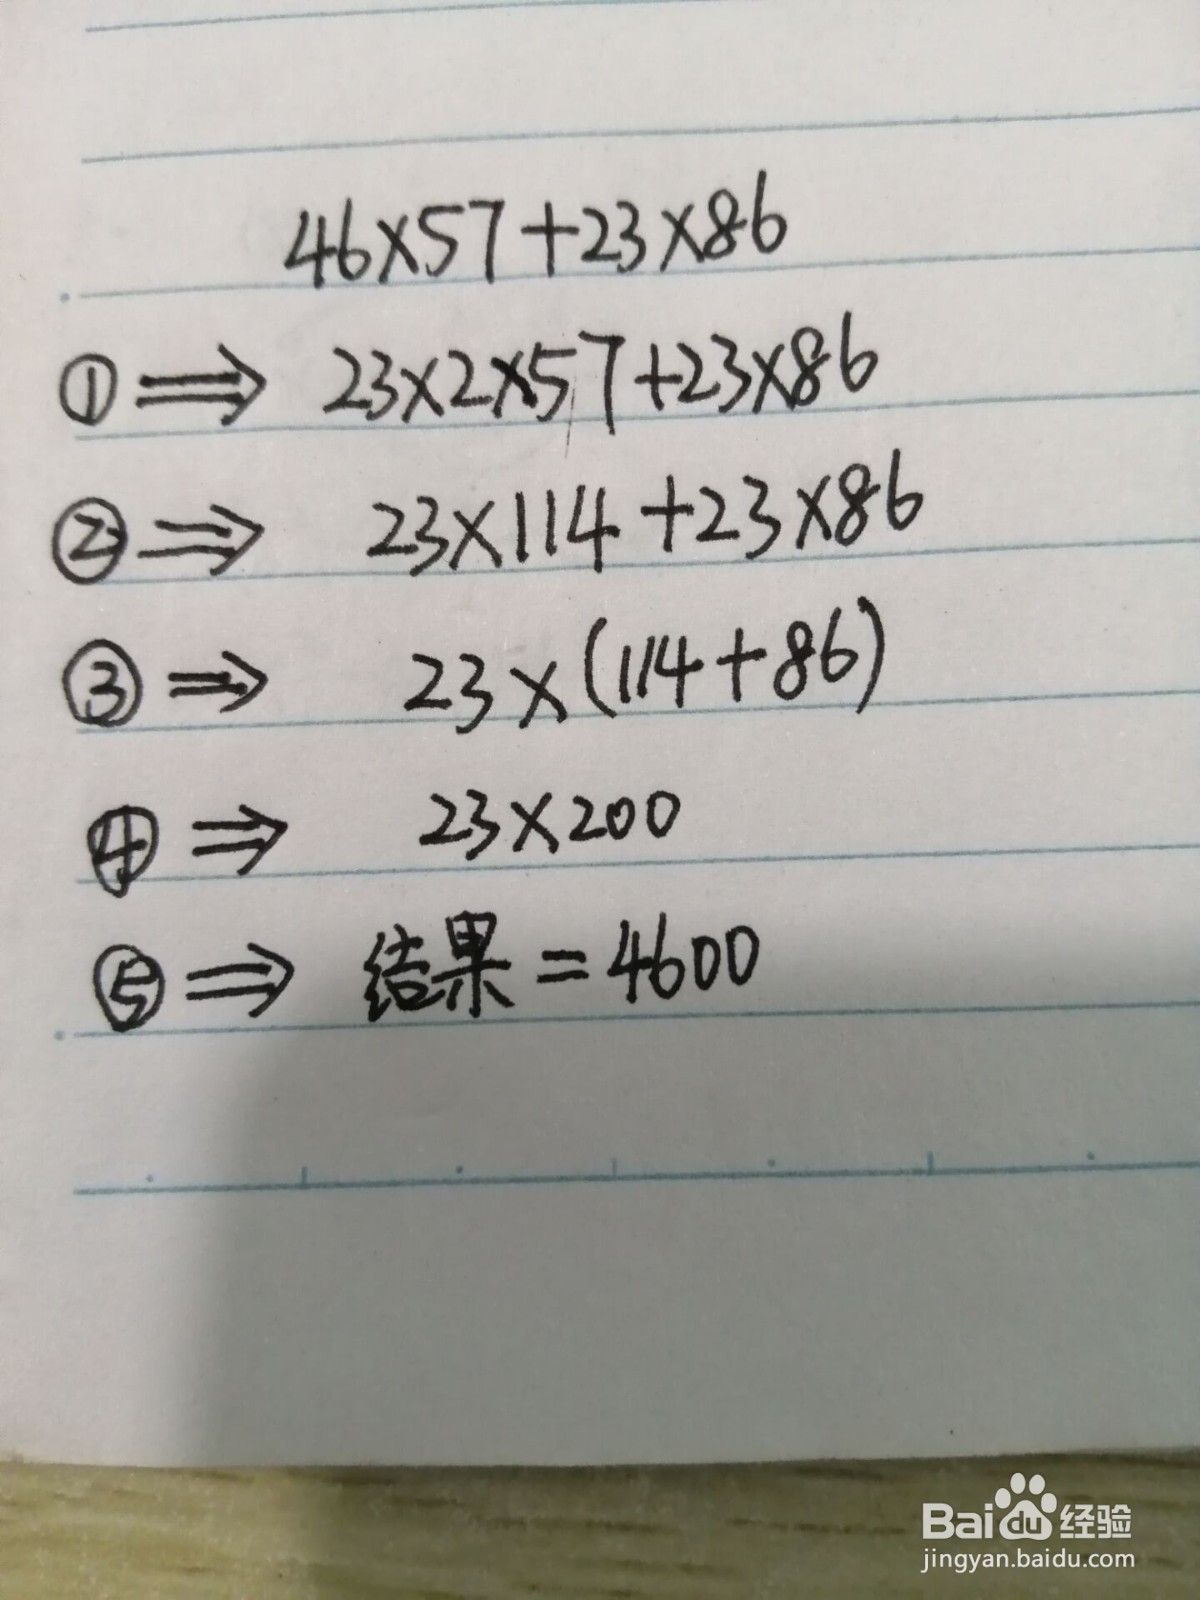 46×57+23×86
①⇒ 23×2×57+23×86
②⇒ 23×114+23×86
③⇒ 23×(114+86)
④⇒ 23×200
⑤⇒ 结果=4600
Baidu经验
jingyan.baidu.com